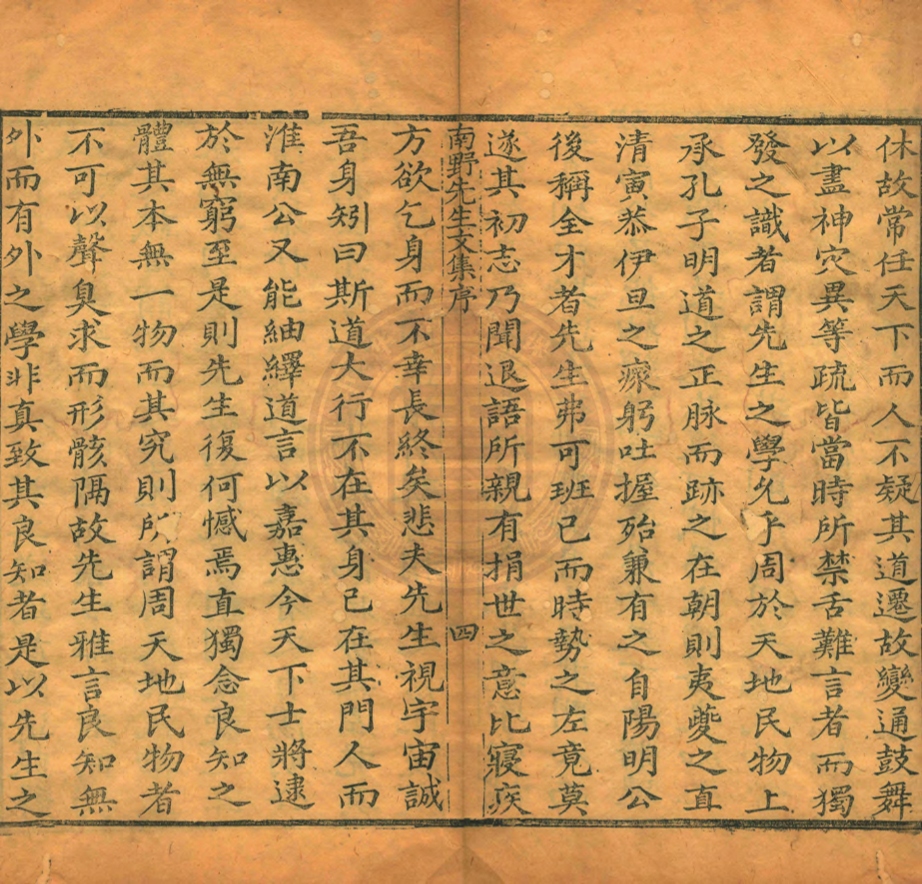 休故常任天下而人不疑其道遷故變通鼓舞
以盡神灾異等疏皆當時所禁舌難言者而獨
發之識者謂先生之學允乎周於天地民物上
承孔子明道之正脉而跡之在朝則夷夔之直
清寅恭伊旦之瘝躬吐握殆兼有之自陽明公
後稱全才者先生弗可班已而時勢之左竟莫
遂其初志乃聞退語所親有捐世之意比寢疾
南野先生文集序 四
方欲乞身而不幸長終矣悲夫先生視宇宙誠
吾身矧曰斯道大行不在其身已在其門人而
淮南公又能紬繹道言以嘉惠今天下士將逮
於無窮至是則先生復何憾焉直獨念良知之
體其本無一物而其究則所謂周天地民物者
不可以聲臭求而形骸隔故先生雅言良知無
外而有外之學非真致其良知者是以先生之